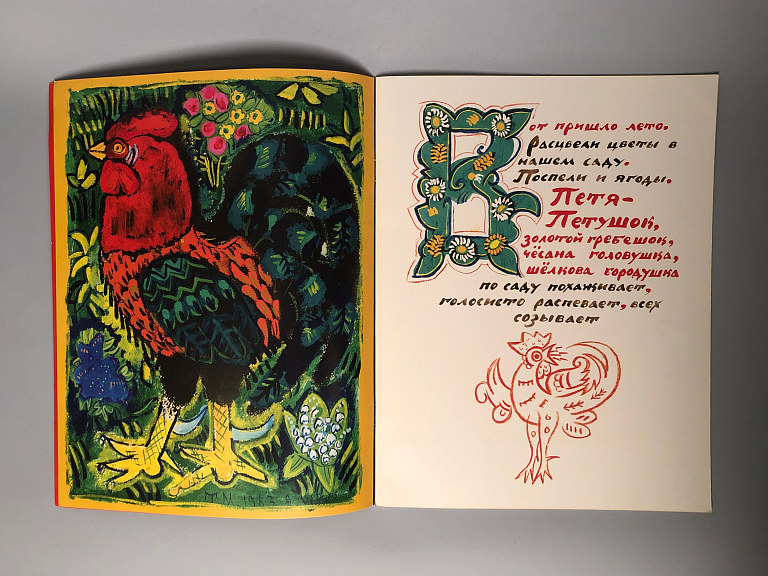 Вот пришло лето.
Расцвели цветы в
нашем саду.
Поспели и ягоды.
Петя-
Петушок,
золотой гребешок,
чёсана головушка,
шёлкова бородушка
по саду похаживает,
голосисто распевает, всех
созывает